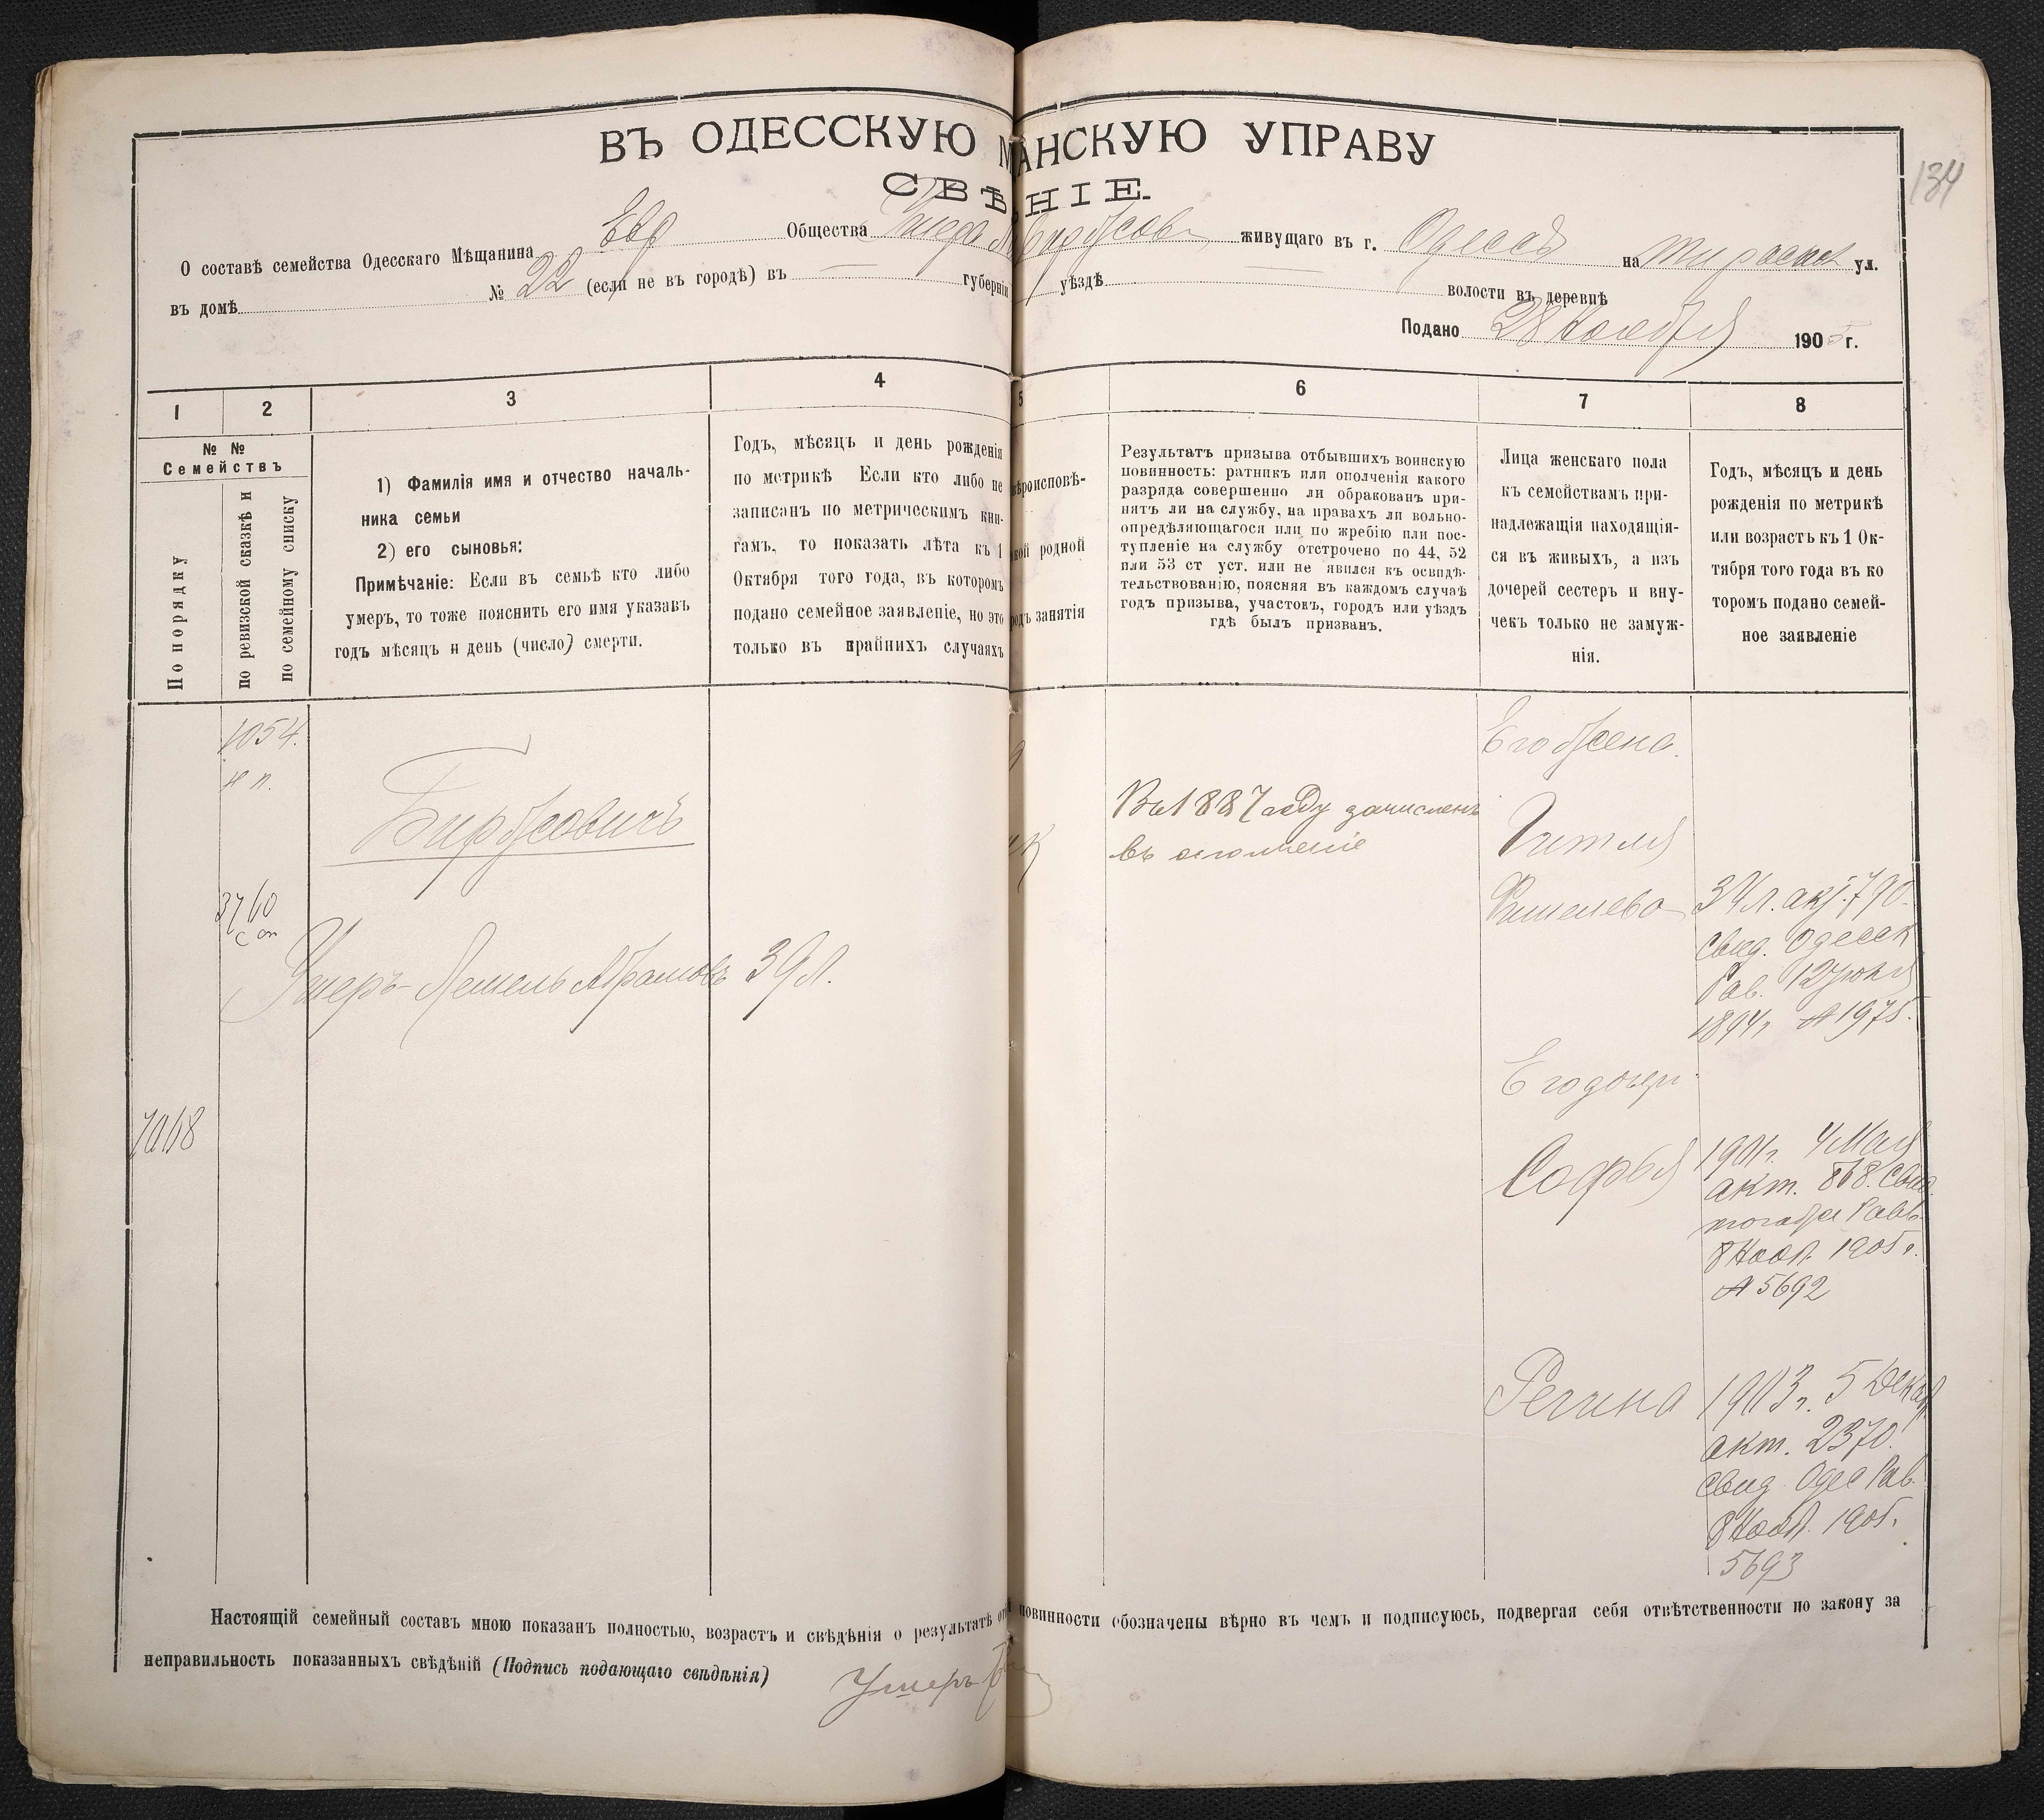 ВЪ ОДЕССКУЮ М АНСКУЮ УПРАВУ
СВѢ НІЕ.
134
О составѣ семейства Одесскаго Мѣщанина Евр Общества живущаго въ г. Одессѣ на ул.
въ домѣ № 22 (если не въ городѣ) въ губерніи уѣздѣ волости въ деревнѣ
Подано 28 Ноября 1905 г.
1 2 3 4 5 6 7 8
№ №
Семействъ
По порядку
по ревизской сказкѣ и
по семейному списку
1) Фамилія имя и отчество началь-
ника семьи
2) его сыновья:
Примѣчаніе: Если въ семьѣ кто либо
умеръ, то тоже пояснить его имя указавъ
годъ мѣсяцъ и день (число) смерти.
Годъ, мѣсяцъ и день рожденія
по метрикѣ Если кто либо не
записанъ по метрическимъ кни-
гамъ, то показать лѣта къ 1
Октября того года, въ которомъ
подано семейное заявленіе, но это
только въ крайнихъ случаяхъ
ѣроисповѣ-
кой родной
одъ занятія
Результатъ призыва отбывшихъ воинскую
повинность: ратникъ или ополченія какого
разряда совершенно ли обракованъ при-
нятъ ли на службу, на правахъ ли вольно-
опредѣляющагося или по жребію или пос-
тупленіе на службу отстрочено по 44, 52
или 53 ст уст. или не явился къ освидѣ-
тельствованію, поясняя въ каждомъ случаѣ
годъ призыва, участокъ, городъ или уѣздъ
гдѣ былъ призванъ.
Лица женскаго пола
къ семействамъ при-
надлежащія находящія-
ся въ живыхъ, а изъ
дочерей сестеръ и вну-
чекъ только не замуж-
нія.
Годъ, мѣсяцъ и день
рожденія по метрикѣ
или возрастъ къ 1 Ок-
тября того года въ ко
торомъ подано семей-
ное заявленіе
1054.
н п.
Бирбсовичъ
3760
с оп
Ушеръ-Лемель Абрамовъ 39 л.
7068
Въ 1887 году зачисленъ
въ ополченіе
Его жена.
Гитля
Фишелева
34 л. акт. 790.
Свид. Одесск
Рав. 12 Іюля
1894 г № 1975.
Его дочери.
Софья
1901 г. 4 Мая
акт. 868. Свид.
тогоже Равв.
8 Нояб. 1905 г.
№ 5692
Регина
1903 г. 5 Декаб
акт. 2370.
Свид. Одес Рав.
8 Нояб. 1905.
5693
Настоящій семейный составъ мною показанъ полностью, возрастъ и свѣдѣнія о результатѣ от повинности обозначены вѣрно въ чемъ и подписуюсь, подвергая себя отвѣтственности по закону за
неправильность показанныхъ свѣдѣній (Подпись подающаго свѣдѣнія) Ушеръ